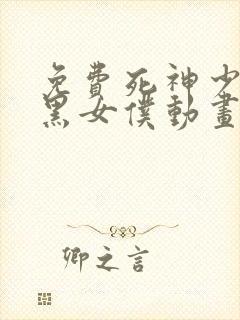 免費死神少
黑女僕動畫
卿之言